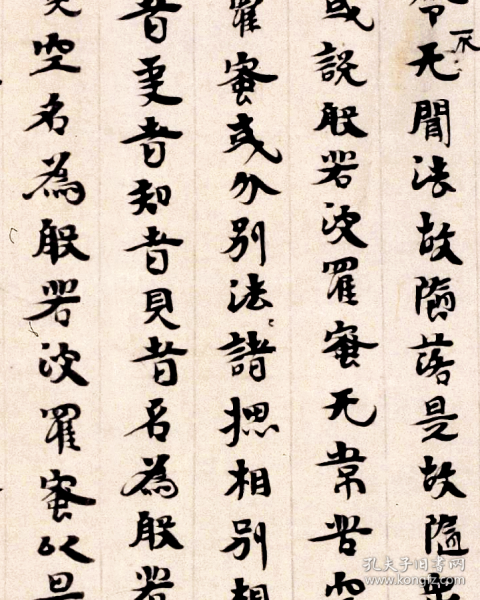 无聞法故隨落是故隨
不
或說般若波羅蜜无常苦空
羅蜜或分別法諸揔相別相
者受者知者見者名為般若
空名為般若波羅蜜以是
孔夫子旧书网
www.kongfz.com